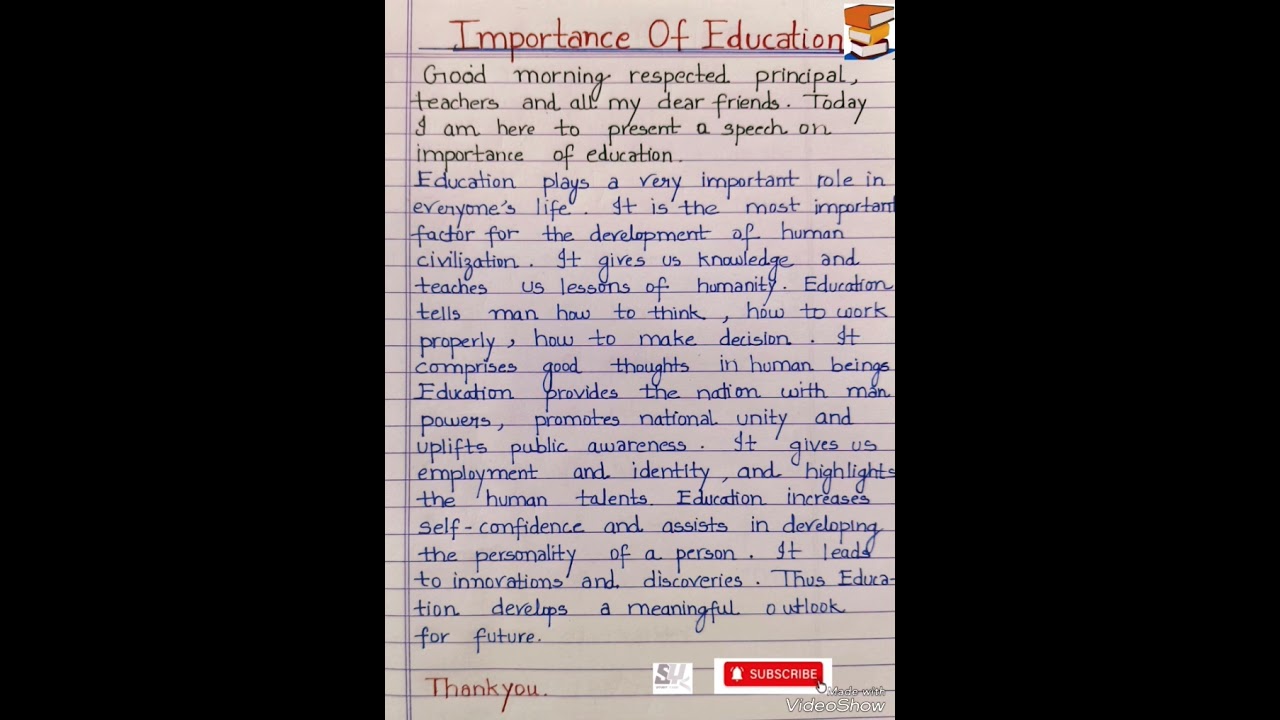 Importance Of Education
Good morning respected principal,
teachers and all my dear friends. Today
I am here to present a speech on
importance of education.
Education plays a very important role in
everyone's life. It is the most important
factor for the development of human
civilization. It gives us knowledge and
teaches us lessons of humanity. Education
tells man how to think, how to work
properly, how to make decision. It
comprises good thoughts in human beings
Education provides the nation with man
powers, promotes national unity and
uplifts public awareness. It gives us
employment and identity, and highlights
the human talents. Education increases
self-confidence and assists in developing
the personality of a person. It leads
to innovations and discoveries. Thus Educa-
tion develops a meaningful outlook
for future.
SUBSCRIBE
Thank you.
Made with
VideoShow